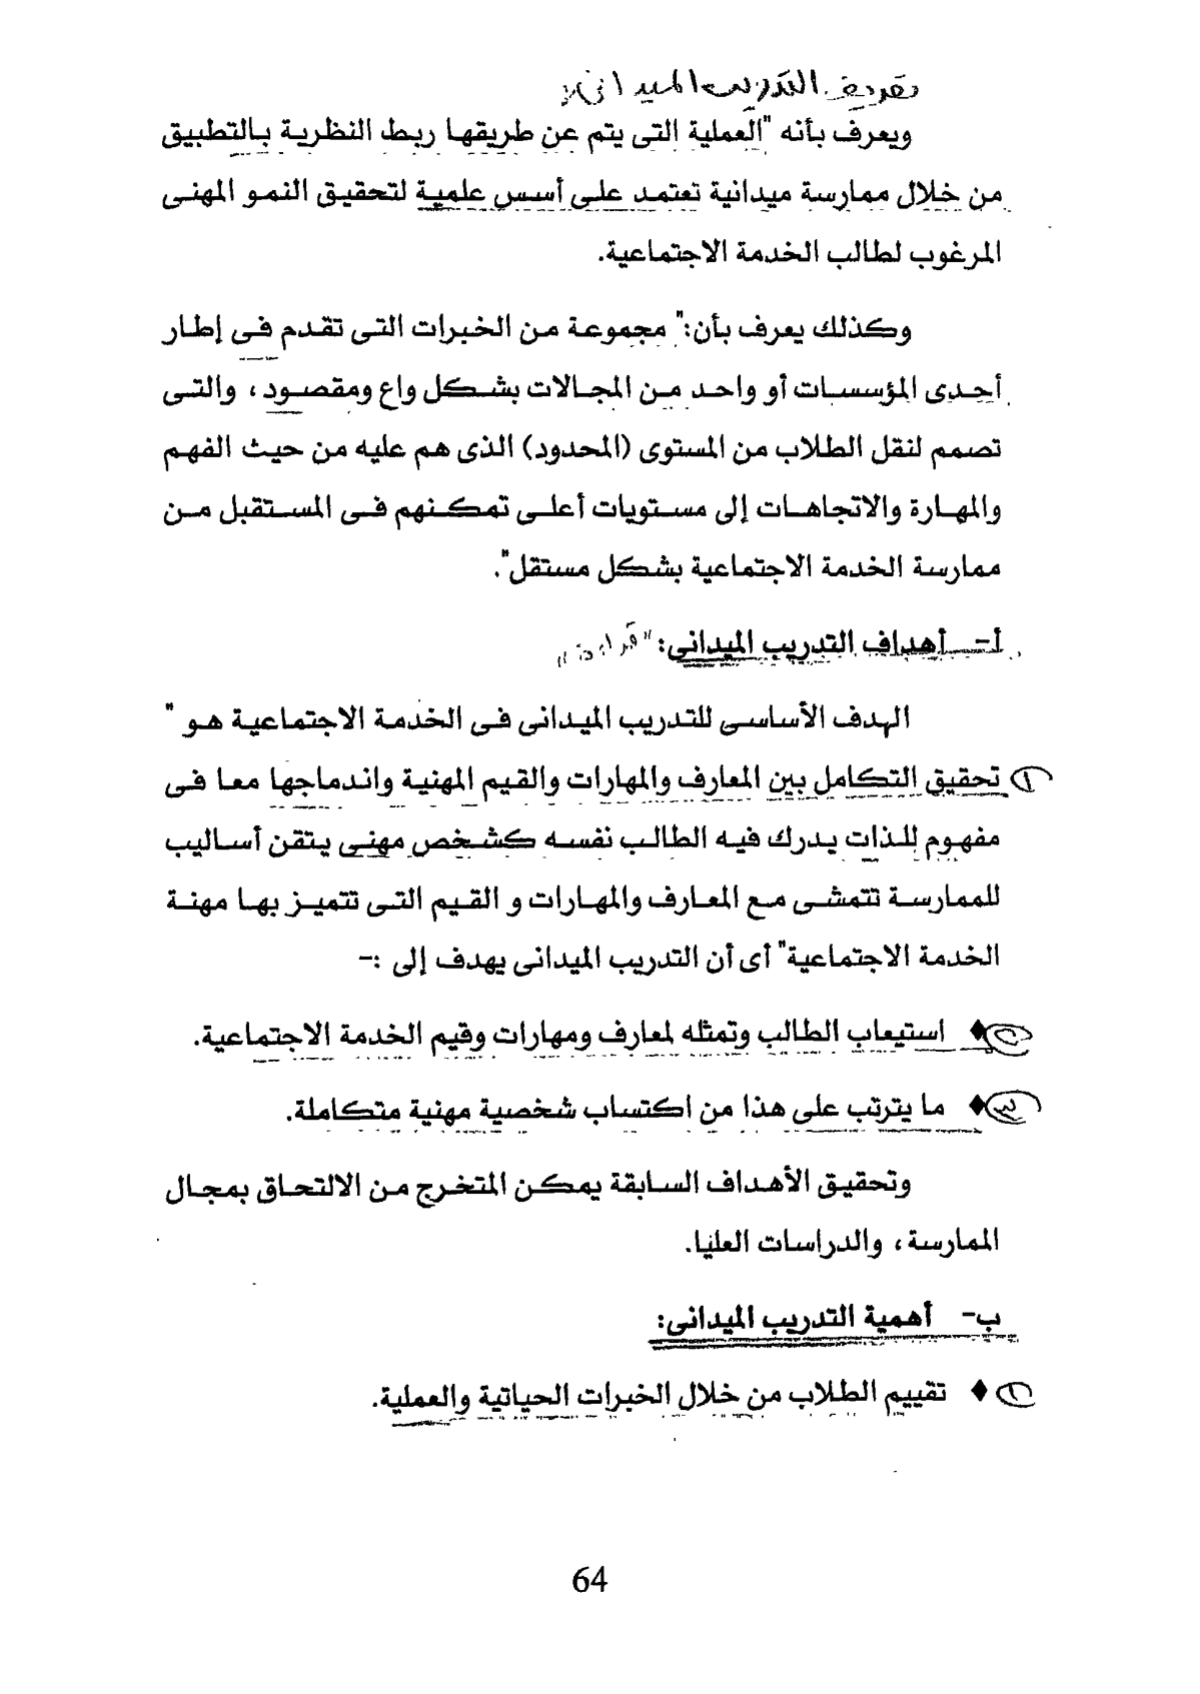 تعريف التدريب الميدانى
ويعرف بأنه "العملية التى يتم عن طريقها ربط النظرية بالتطبيق
من خلال ممارسة ميدانية تعتمد على أسس علمية لتحقيق النمو المهنى
المرغوب لطالب الخدمة الاجتماعية.
وكذلك يعرف بأن:" مجموعة من الخبرات التى تقدم فى إطار
أحدى المؤسسات أو واحد من المجالات بشكل واع ومقصود، والتى
تصمم لنقل الطلاب من المستوى (المحدود) الذى هم عليه من حيث الفهم
والمهارة والاتجاهات إلى مستويات أعلى تمكنهم فى المستقبل من
ممارسة الخدمة الاجتماعية بشكل مستقل".
أ- أهداف التدريب الميدانى: "قراءة"
الهدف الأساسى للتدريب الميدانى فى الخدمة الاجتماعية هو "
١ تحقيق التكامل بين المعارف والمهارات والقيم المهنية واندماجها معا فى
مفهوم للذات يدرك فيه الطالب نفسه كشخص مهنى يتقن أساليب
للممارسة تتمشى مع المعارف والمهارات و القيم التى تتميز بها مهنة
الخدمة الاجتماعية" أى أن التدريب الميدانى يهدف إلى :-
٢ ♦ استيعاب الطالب وتمثله لمعارف ومهارات وقيم الخدمة الاجتماعية.
٣ ♦ ما يترتب على هذا من اكتساب شخصية مهنية متكاملة.
وتحقيق الأهداف السابقة يمكن المتخرج من الالتحاق بمجال
الممارسة، والدراسات العليا.
ب- أهمية التدريب الميدانى:
١ ♦ تقييم الطلاب من خلال الخبرات الحياتية والعملية.
64